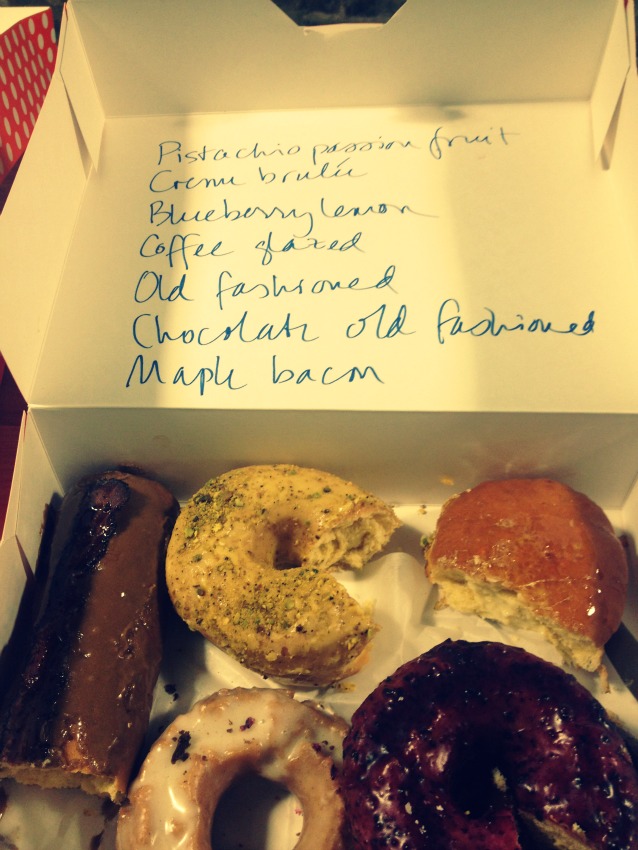 Pistachio passion fruit
Creme brulée
Blueberry lemon
Coffee glazed
Old fashioned
Chocolate old fashioned
Maple bacon